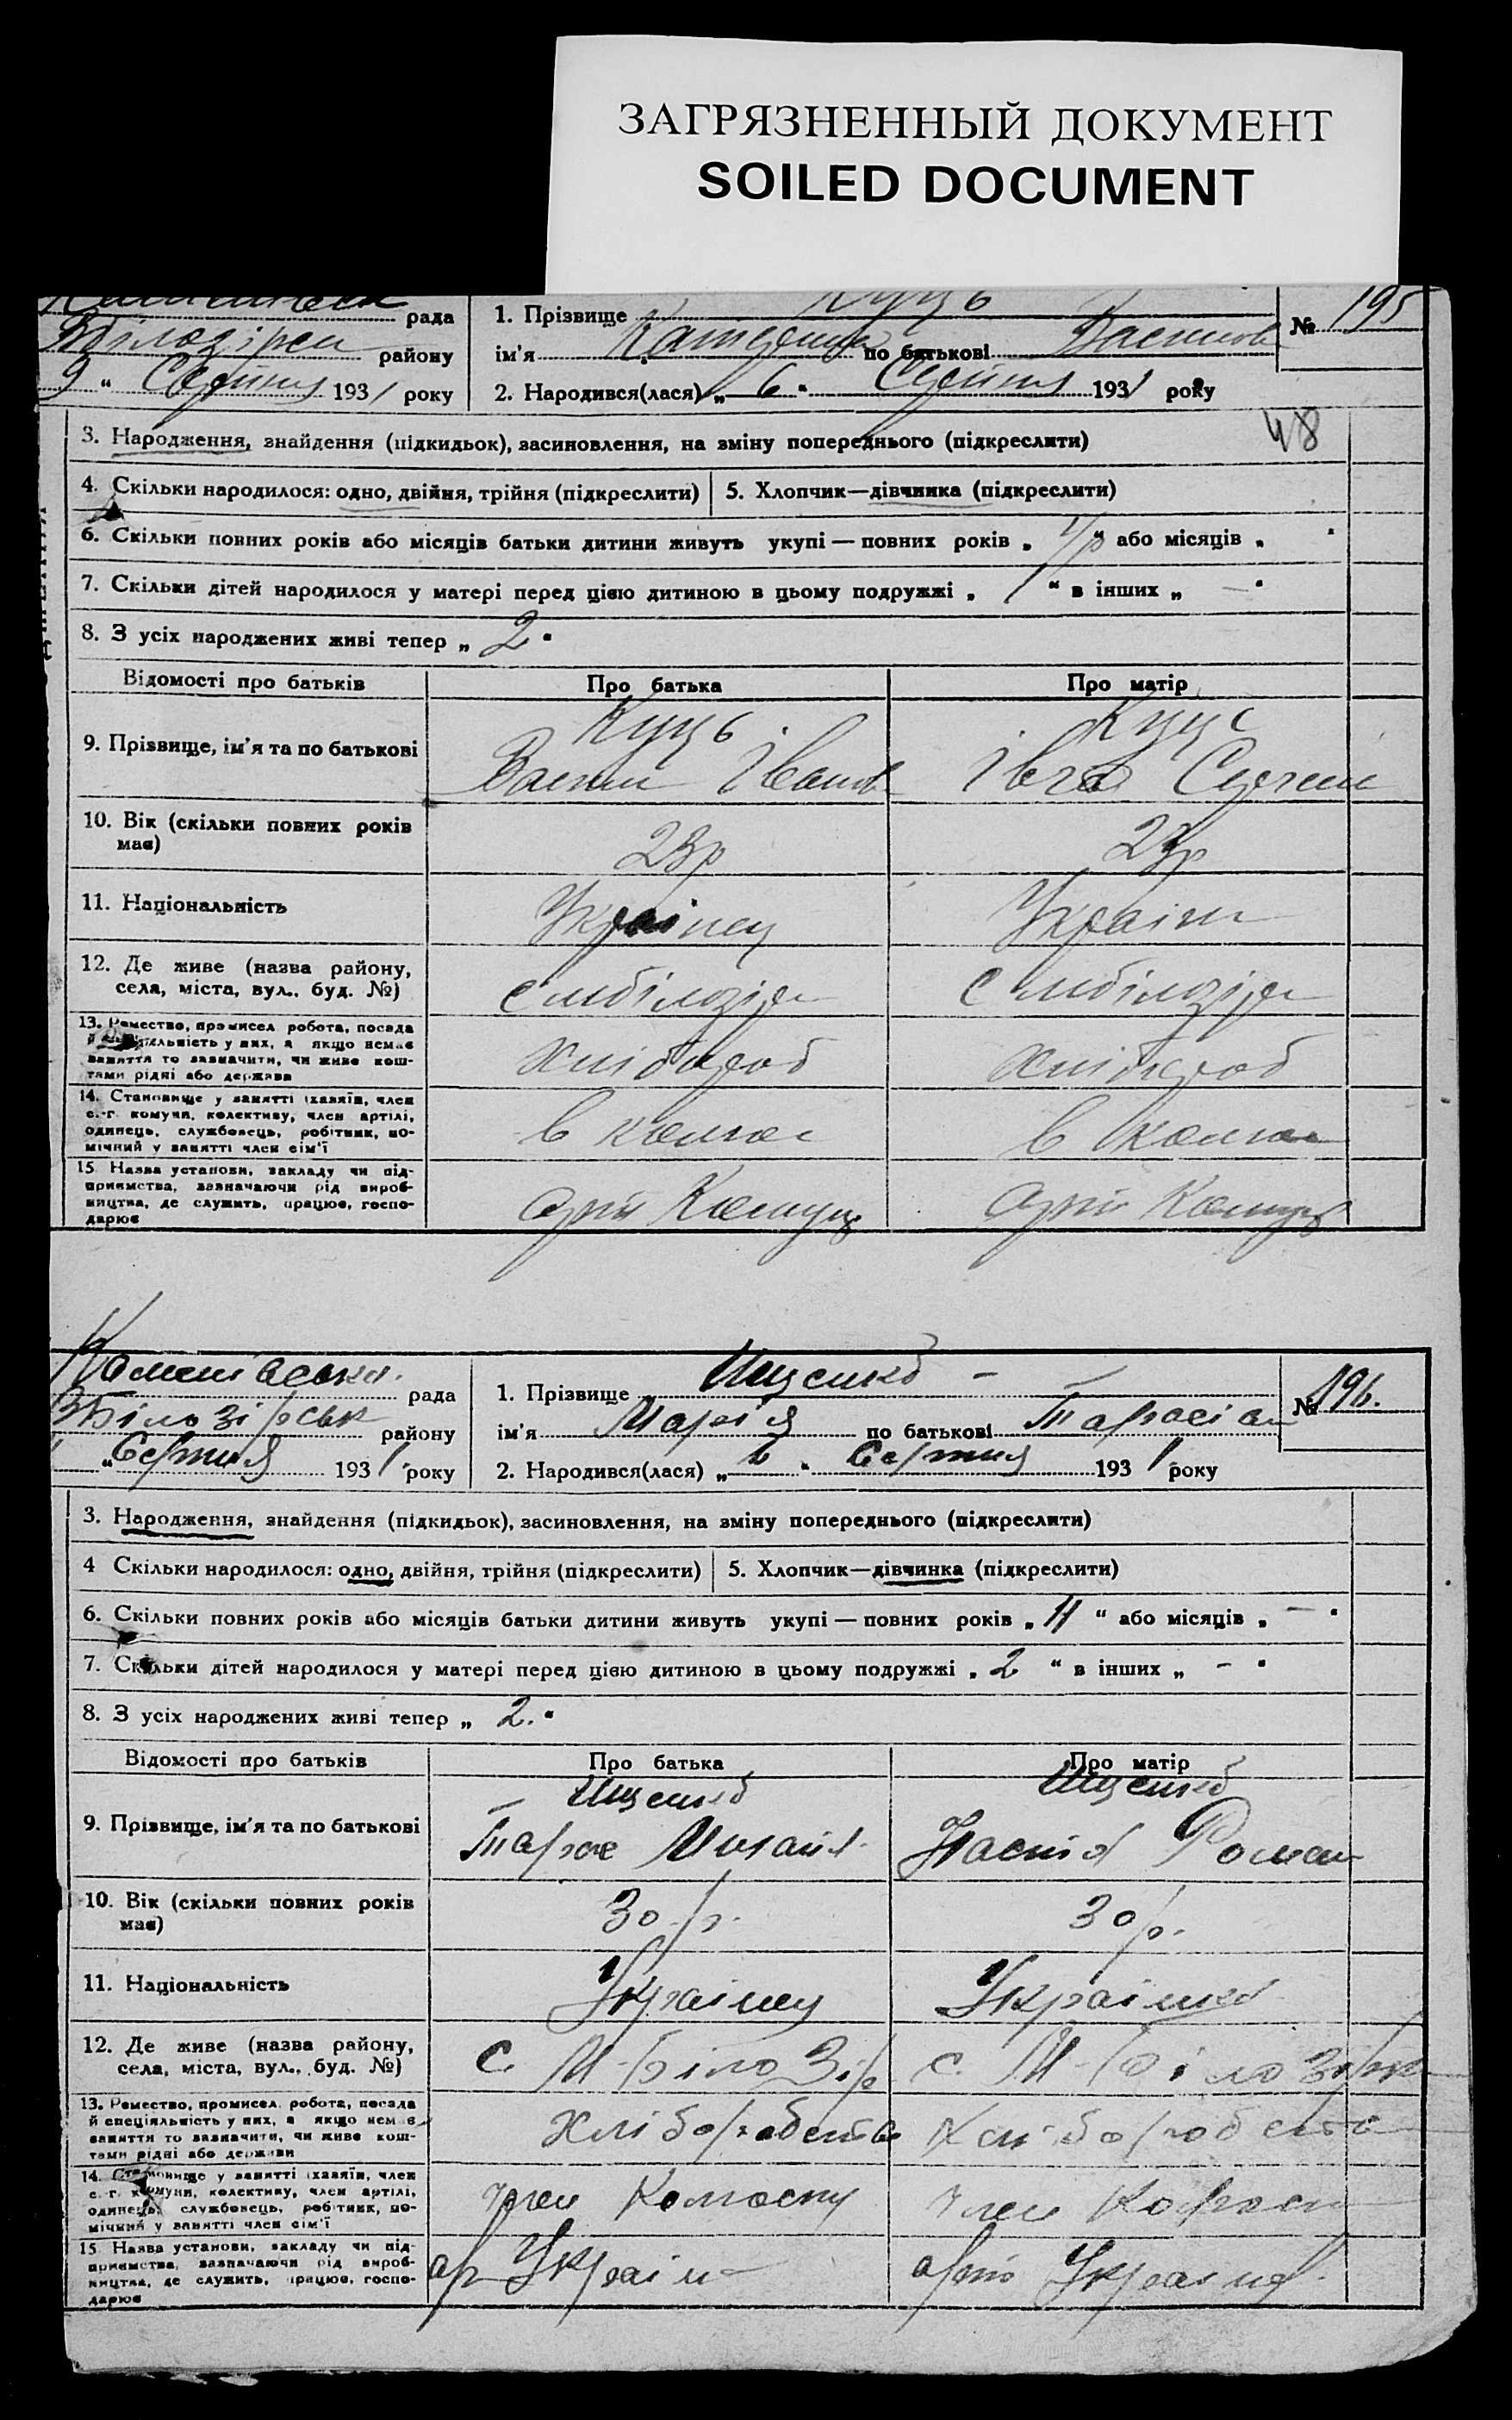 ЗАГРЯЗНЕННЫЙ ДОКУМЕНТ
SOILED DOCUMENT
рада
району
9 " Серпня 1931 року
1. Прізвище Куць
ім'я Катерина по батькові
2. Народився(лася) „ 6 " Серпня 1931 року
№ 195
48
3. Народження, знайдення (підкидьок), засиновлення, на зміну попереднього (підкреслити)
4. Скільки народилося: одно, двійня, трійня (підкреслити)
5. Хлопчик—дівчинка (підкреслити)
6. Скільки повних років або місяців батьки дитини живуть укупі — повних років „ " або місяців „ "
7. Скільки дітей народилося у матері перед цією дитиною в цьому подружжі „ 1 " в інших „ — "
8. З усіх народжених живі тепер „ 2 "
Відомості про батьків Про батька Про матір
Куць Куць
9. Прізвище, ім'я та по батькові
10. Вік (скільки повних років має) 23р 23р
11. Національність Українец Україн
12. Де живе (назва району, села, міста, вул., буд. №) с мбілозір с мбілозір
13. Ремество, промисел робота, посада
й спеціяльність у них, а якщо немає
заняття то зазначити, чи живе кош-
тами рідні або держави
хлібороб хлібороб
14. Становище у занятті (хазяїн, член
с.-г. комуни, колективу, член артілі,
одинець, службовець, робітник, по-
мічний у занятті член сім'ї
в колгос в колгос
15. Назва установи, закладу чи під-
приємства, зазначаючи рід вироб-
ництва, де служить, працює, госпо-
дарює
рада
району
" Серпня 1931 року
1. Прізвище Ищенко —
ім'я Марія по батькові
2. Народився(лася) „ " Серпня 1931 року
№ 196.
3. Народження, знайдення (підкидьок), засиновлення, на зміну попереднього (підкреслити)
4 Скільки народилося: одно, двійня, трійня (підкреслити)
5. Хлопчик—дівчинка (підкреслити)
6. Скільки повних років або місяців батьки дитини живуть укупі — повних років „ 11 " або місяців „ — "
7. Скільки дітей народилося у матері перед цією дитиною в цьому подружжі „ 2 " в інших „ — "
8. З усіх народжених живі тепер „ 2. "
Відомості про батьків Про батька Про матір
Ищенко Ищенко
9. Прізвище, ім'я та по батькові Тарас Михайл. Настя Роман
10. Вік (скільки повних років має) 30 р. 30 р.
11. Національність Українец Українка
12. Де живе (назва району, села, міста, вул., буд. №) с. М-Білозір с. М-Білозірка
13. Ремество, промисел, робота, посада
й спеціяльність у них, а якщо немає
заняття то зазначити, чи живе кош-
тами рідні або держави
Хлібороб Хлібороб
14. Становище у занятті (хазяїн, член
с.-г. комуни, колективу, член артілі,
одинець, службовець, робітник, по-
мічний у занятті член сім'ї
член Колгоспу член
15. Назва установи, закладу чи під-
приємства, зазначаючи рід вироб-
ництва, де служить, працює, госпо-
дарює
ар Україна Україна